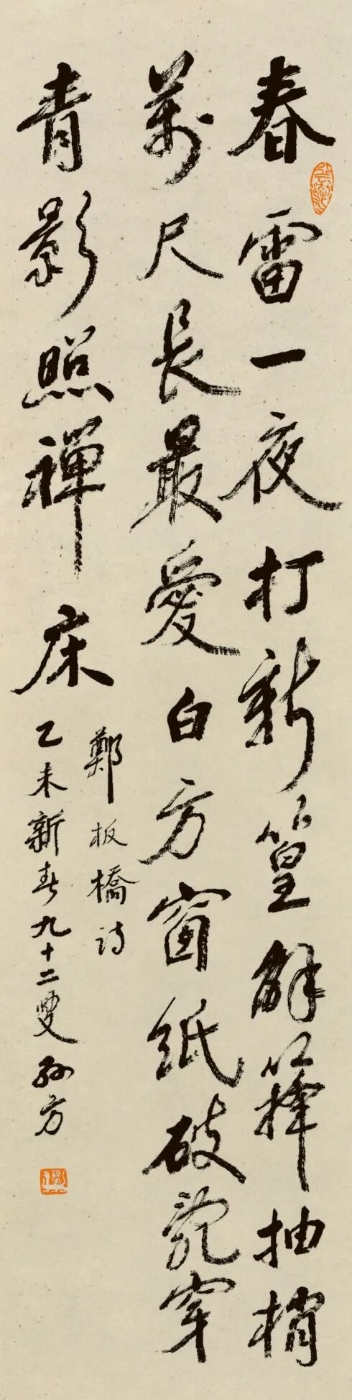 春雷一夜打新篁解籜抽梢
萬尺長最愛白方窗紙破亂穿
青影照禪床
鄭板橋詩
乙未新春九十二叟孫方